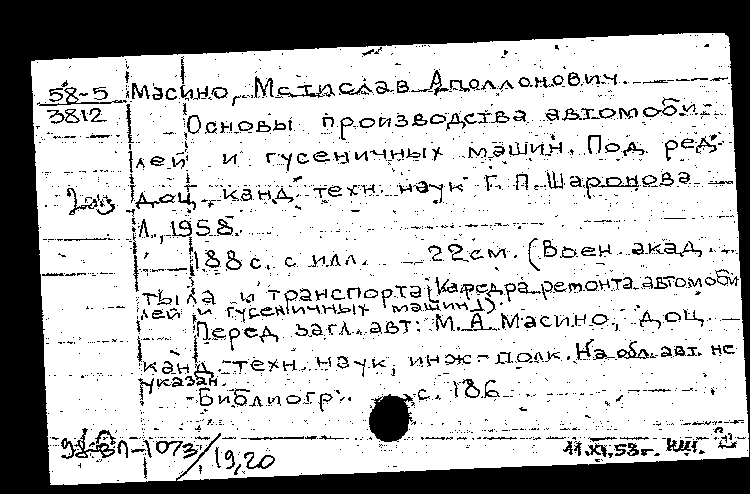 58-5
3812
Масино, Мстислав Аполлонович.
Основы производства автомоби-
лей и гусеничных машин. Под ред.
доц., канд. техн. наук Г. П. Шаронова
Л., 1958.
188 с. с илл. 22 см. (Воен. акад.
тыла и транспорта. Кафедра ремонта автомоби
лей и гусеничных машин).
Перед загл. авт: М. А. Масино, доц.
канд. техн. наук, инж-полк. На обл. авт. не
указан.
Библиогр.: с. 186
/19,20
11.XI.58г. НШ.